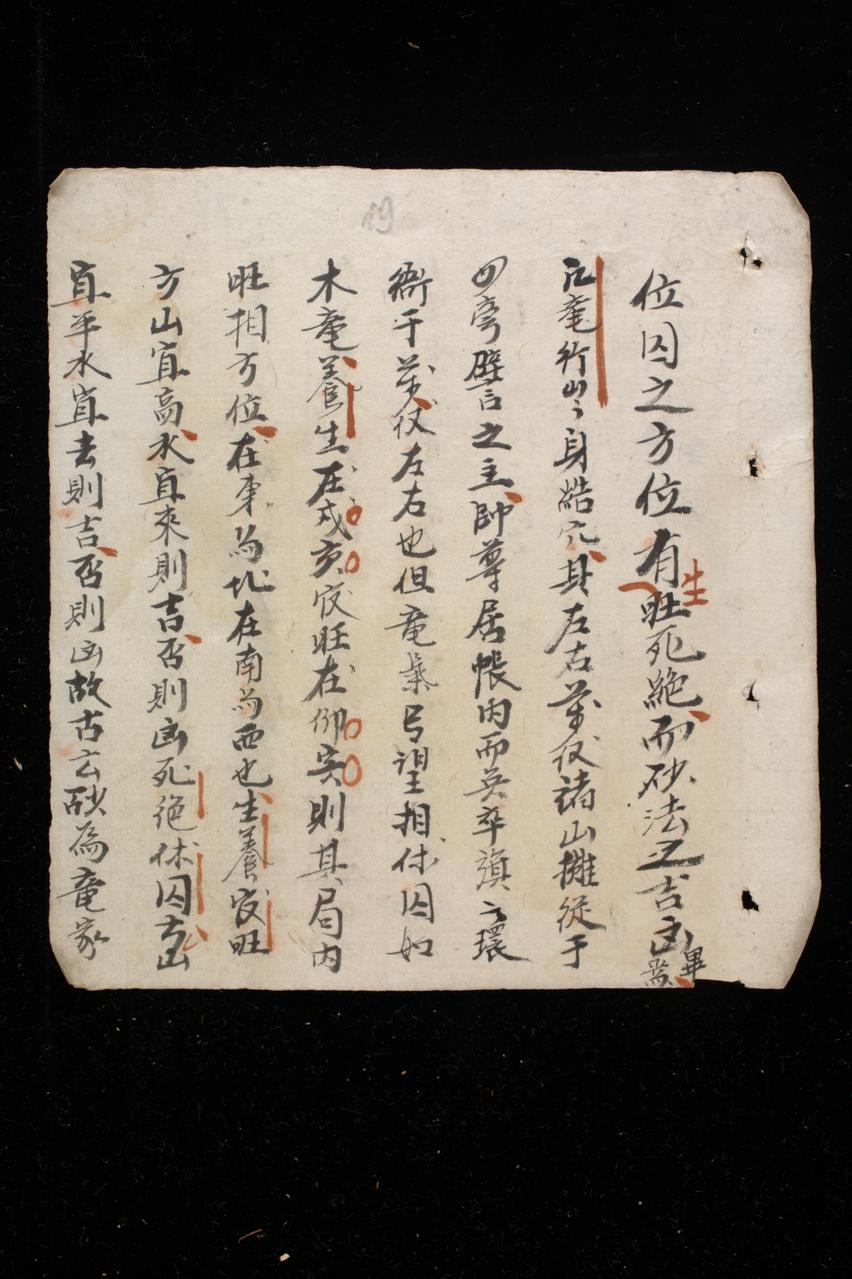 19
位囚之方位有生旺死絶而砂法之吉凶畢焉
凡竜行出身結穴其左右前後諸山擁從于
四旁譬言之主帥尊居帳内而兵卒旗々環
衛于前後左右也但竜氣旺相休囚如
木竜養生在戌亥官旺在卯寅則其局内
旺相方位在東為北在南為西也生養官旺
方山宜高水宜來則吉否則凶死絶休囚方山
宜平水宜去則吉否則凶故古云砂為竜家